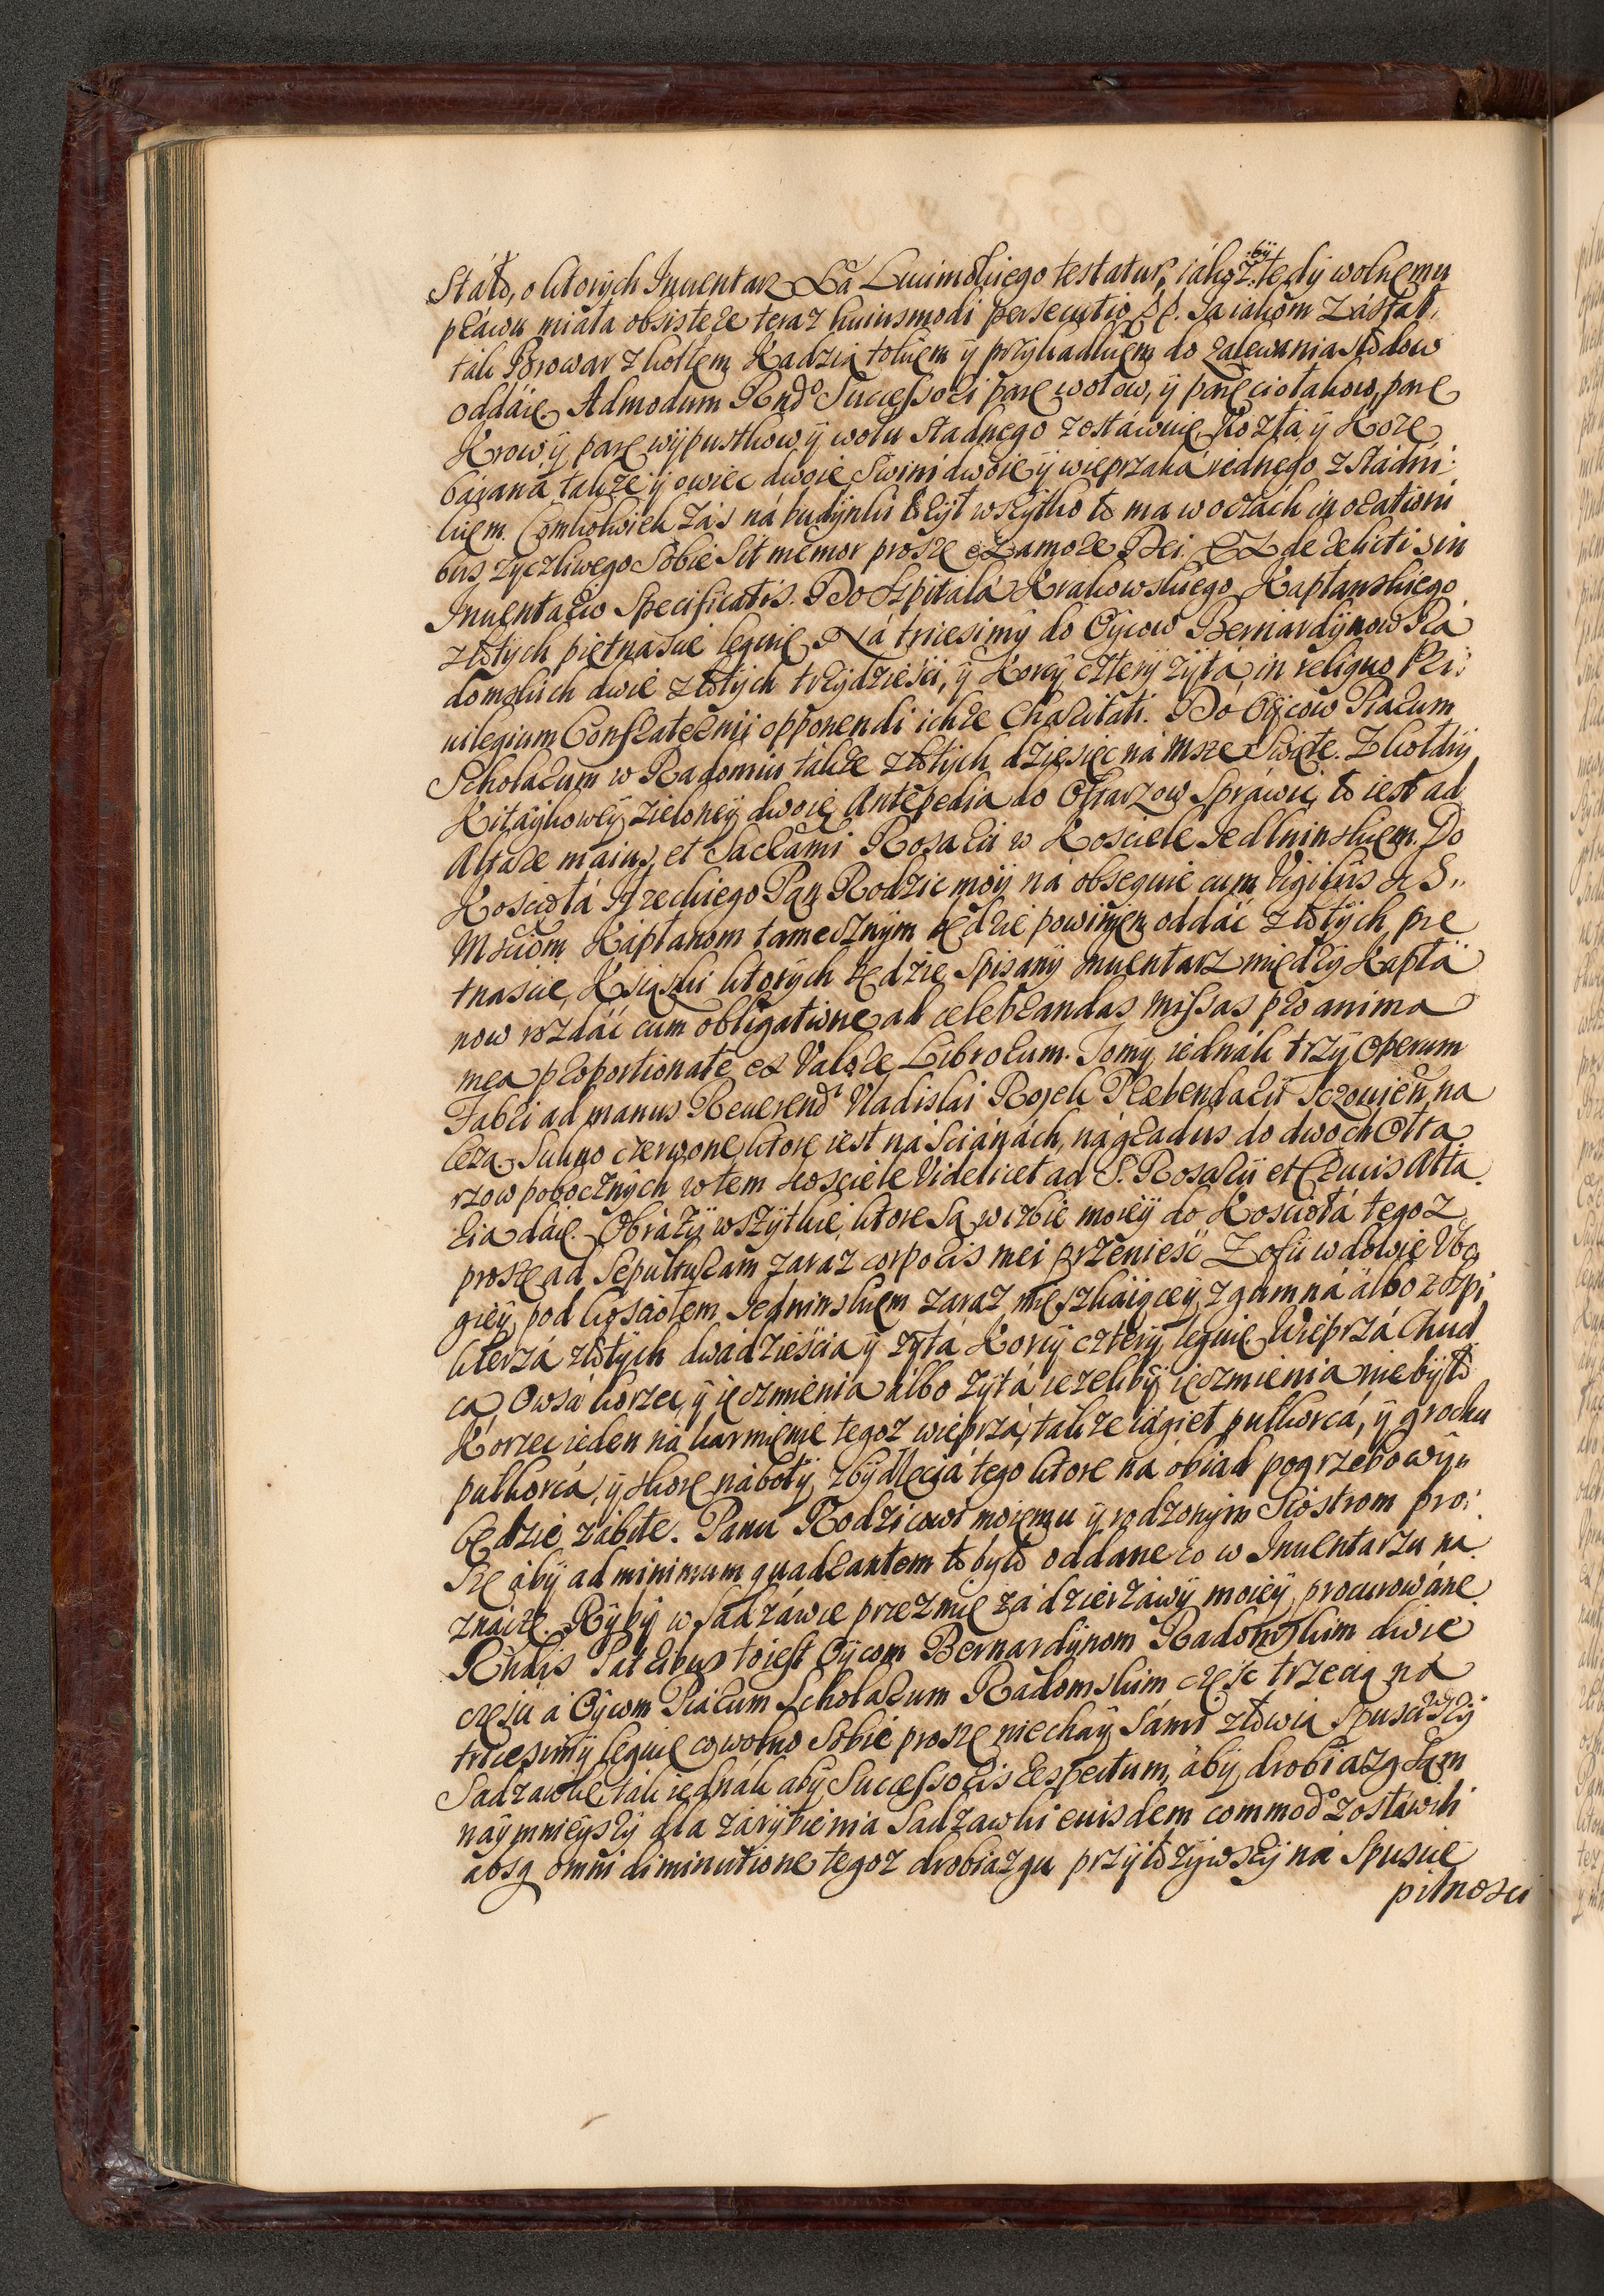 Stáło, o ktorych Inuentarz Xa Lucimskiego testatur, iákoż by tedy wolnemu
práwu miáła obsistere teraz huiusmodi persecutio etc. Ja iakom zástał
ták Browar z kotłem Kadzią y przykadkiem do zalewania słodow
oddáię Admodum Rndo Successori parę wołow, y parę ciołakow, parę
Krow y parę wypustkow y wołu stadnego zostáwuię, Kozła y Kozę
báraná także y owiec dwoie Swini dwoie y wieprzaká iednego z stádni
kiem. Comkolwiek záś ná budynki łożył wszytko to ma w oczách in orationi
bus życzliwego sobie sit memor proszę ex amore Dei. Ex derelictis in
Inuentario Specificatis. Do Szpitalá Krakowskiego Kapłanskiego
złotych piętnaście leguię Ná tricesimy do Oycow Bernardynow Rá
domskich dwie złotych trzydzieści, y Korcy cztery żytá in reliquo Pri
uilegium Confraternij opponendi ichże Charitati. Do Oycow Piarum
Scholarum w Radomiu tákże złotych dziesięc ná Msze Swięte. Z kołdry
Kitáykowey zieloney dwoie Antepedia do Ołtarzow spráwić, to iest ad
Altare maius, et Sacrami Rosalii w Kościele Jedlninskiem. Do
Kościołá Pan Rodzic moy ná obsequie cum Vigiliis
Mściom Kapłanom tamecznym będzie powinien oddáć złotych pię
tnaście, Kśiąszki ktorych będzie spisany inuentarz między Kapłá
now rozdáć cum obligatione ad celebrandas missas pro anima
mea proportionate ex Valore Librorum. Tomy iednák trzy Operum
Fabri ad manus Reuerendi Vladislai Rojek Præbendarii
Sukno czerwone, ktore iest ná ściánách, ná gradus do dwoch Ołta
rzow pobocznych w tem kościele Videlicet ad S. Rosalij et Crucis Alta
ria dáię. Obrázy wszytkie, ktore są w izbie moiey do Kościołá tegoż
proszę ad Sepulturam zaraz corporis mei przenieść Zofii wdowie Vbo
giey pod kościołem Jedninskiem zaraz mięszkáiącey, z gumná álbo z spi
klerzá złotych dwádzieścia y żytá Korcy cztery leguię. Wieprzá Chud
ca Owsá korzec, y ięczmienia albo żytá ieżeliby ięczmienia nie było
Korzec ieden ná karmienie tegoż wieprzá, tákże iágieł pułkorcá, y grochu
pułkorcá, y skorę ná boty z bydlęciá tego ktore ná obiad pogrzebowy
będzie zábite. Panu Rodzicowi moiemu y rodzonym Siostrom pro
szę áby ad minimum quadrantem to było oddane co w Inuentarzu na
znáczę. Ryby w sadzáwce przezmię zá dzierżáwy moiey procurowáne
Rndis Patribus to iest Oycom Bernardynom Radomskim dwie
części á Oycom Piarum Scholarum Radomskim część trzecią ná
tricesimy leguię co wolno sobie proszę niechay sámi złowią spusciwszy
Sadzawkę, ták iednák aby Successoris respectum, áby drobiazg sam
naymnieyszy dla zárybienia Sadzawki euisdem commodo zostáwili
absq omni diminutione tegoż drobiazgu przyłożywszy ná spuście
pilności